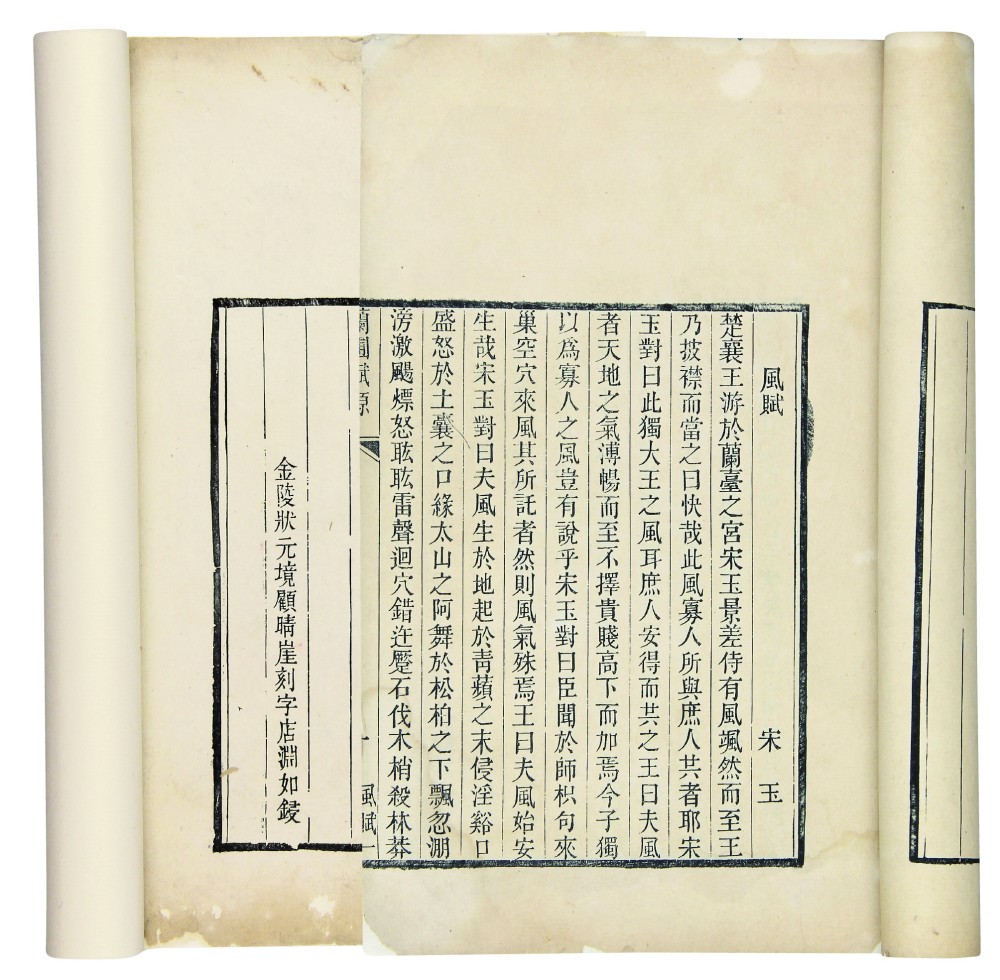 風賦 宋玉
楚襄王游於蘭臺之宮宋玉景差侍有風颯然而至王
乃披襟而當之曰快哉此風寡人所與庶人共者耶宋
玉對曰此獨大王之風耳庶人安得而共之王曰夫風
者天地之氣溥暢而至不擇貴賤高下而加焉今子獨
以爲寡人之風豈有說乎宋玉對曰臣聞於師枳句來
巢空穴來風其所託者然則風氣殊焉王曰夫風始安
生哉宋玉對曰夫風生於地起於青蘋之末侵淫谿口
盛怒於土囊之口緣太山之阿舞於松柏之下飄忽淜
滂激颺熛怒耾耾雷聲迴穴錯迕蹷石伐木梢殺林莽
蘭賦原 一 風賦 一
金陵狀元境顧晴崖刻字店淵如鋟